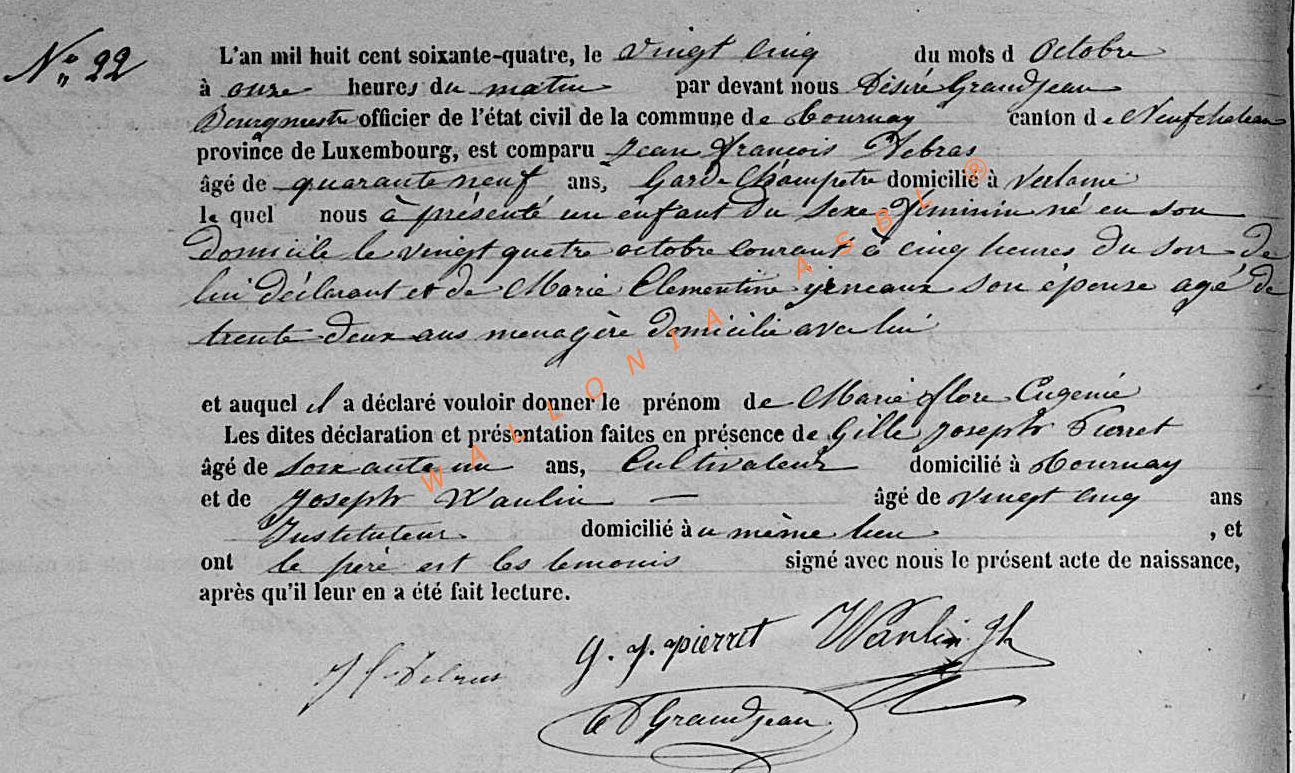 N° 22
L'an mil huit cent soixante-quatre, le vingt cinq du mois d Octobre
à onze heures du matin par devant nous Désiré Grandjean
Bourgmestre officier de l'état civil de la commune de Tournay canton de Neufchateau
province de Luxembourg, est comparu Jean François Debras
âgé de quarante neuf ans, Garde Champetre domicilié à Verlaine
le quel nous à présenté un enfant du sexe féminin né en son
domicile le vingt quatre octobre courant à cinq heures du soir de
lui déclarant et de Marie Clementine son épouse agé de
trente deux ans menagère domicilié avec lui
et auquel il a déclaré vouloir donner le prénom de Marie flore Eugenie
Les dites déclaration et présentation faites en présence de Gille Joseph Pierret
âgé de soixante un ans, Cultivateur domicilié à Tournay
et de Joseph Wanlin — âgé de vingt cinq ans
Instituteur domicilié à u même lieu , et
ont le père et les temoins signé avec nous le présent acte de naissance,
après qu'il leur en a été fait lecture.
J f Debras
g. j. pierret Wanlin Jh
D Grandjean
WALLONIA ASBL ®